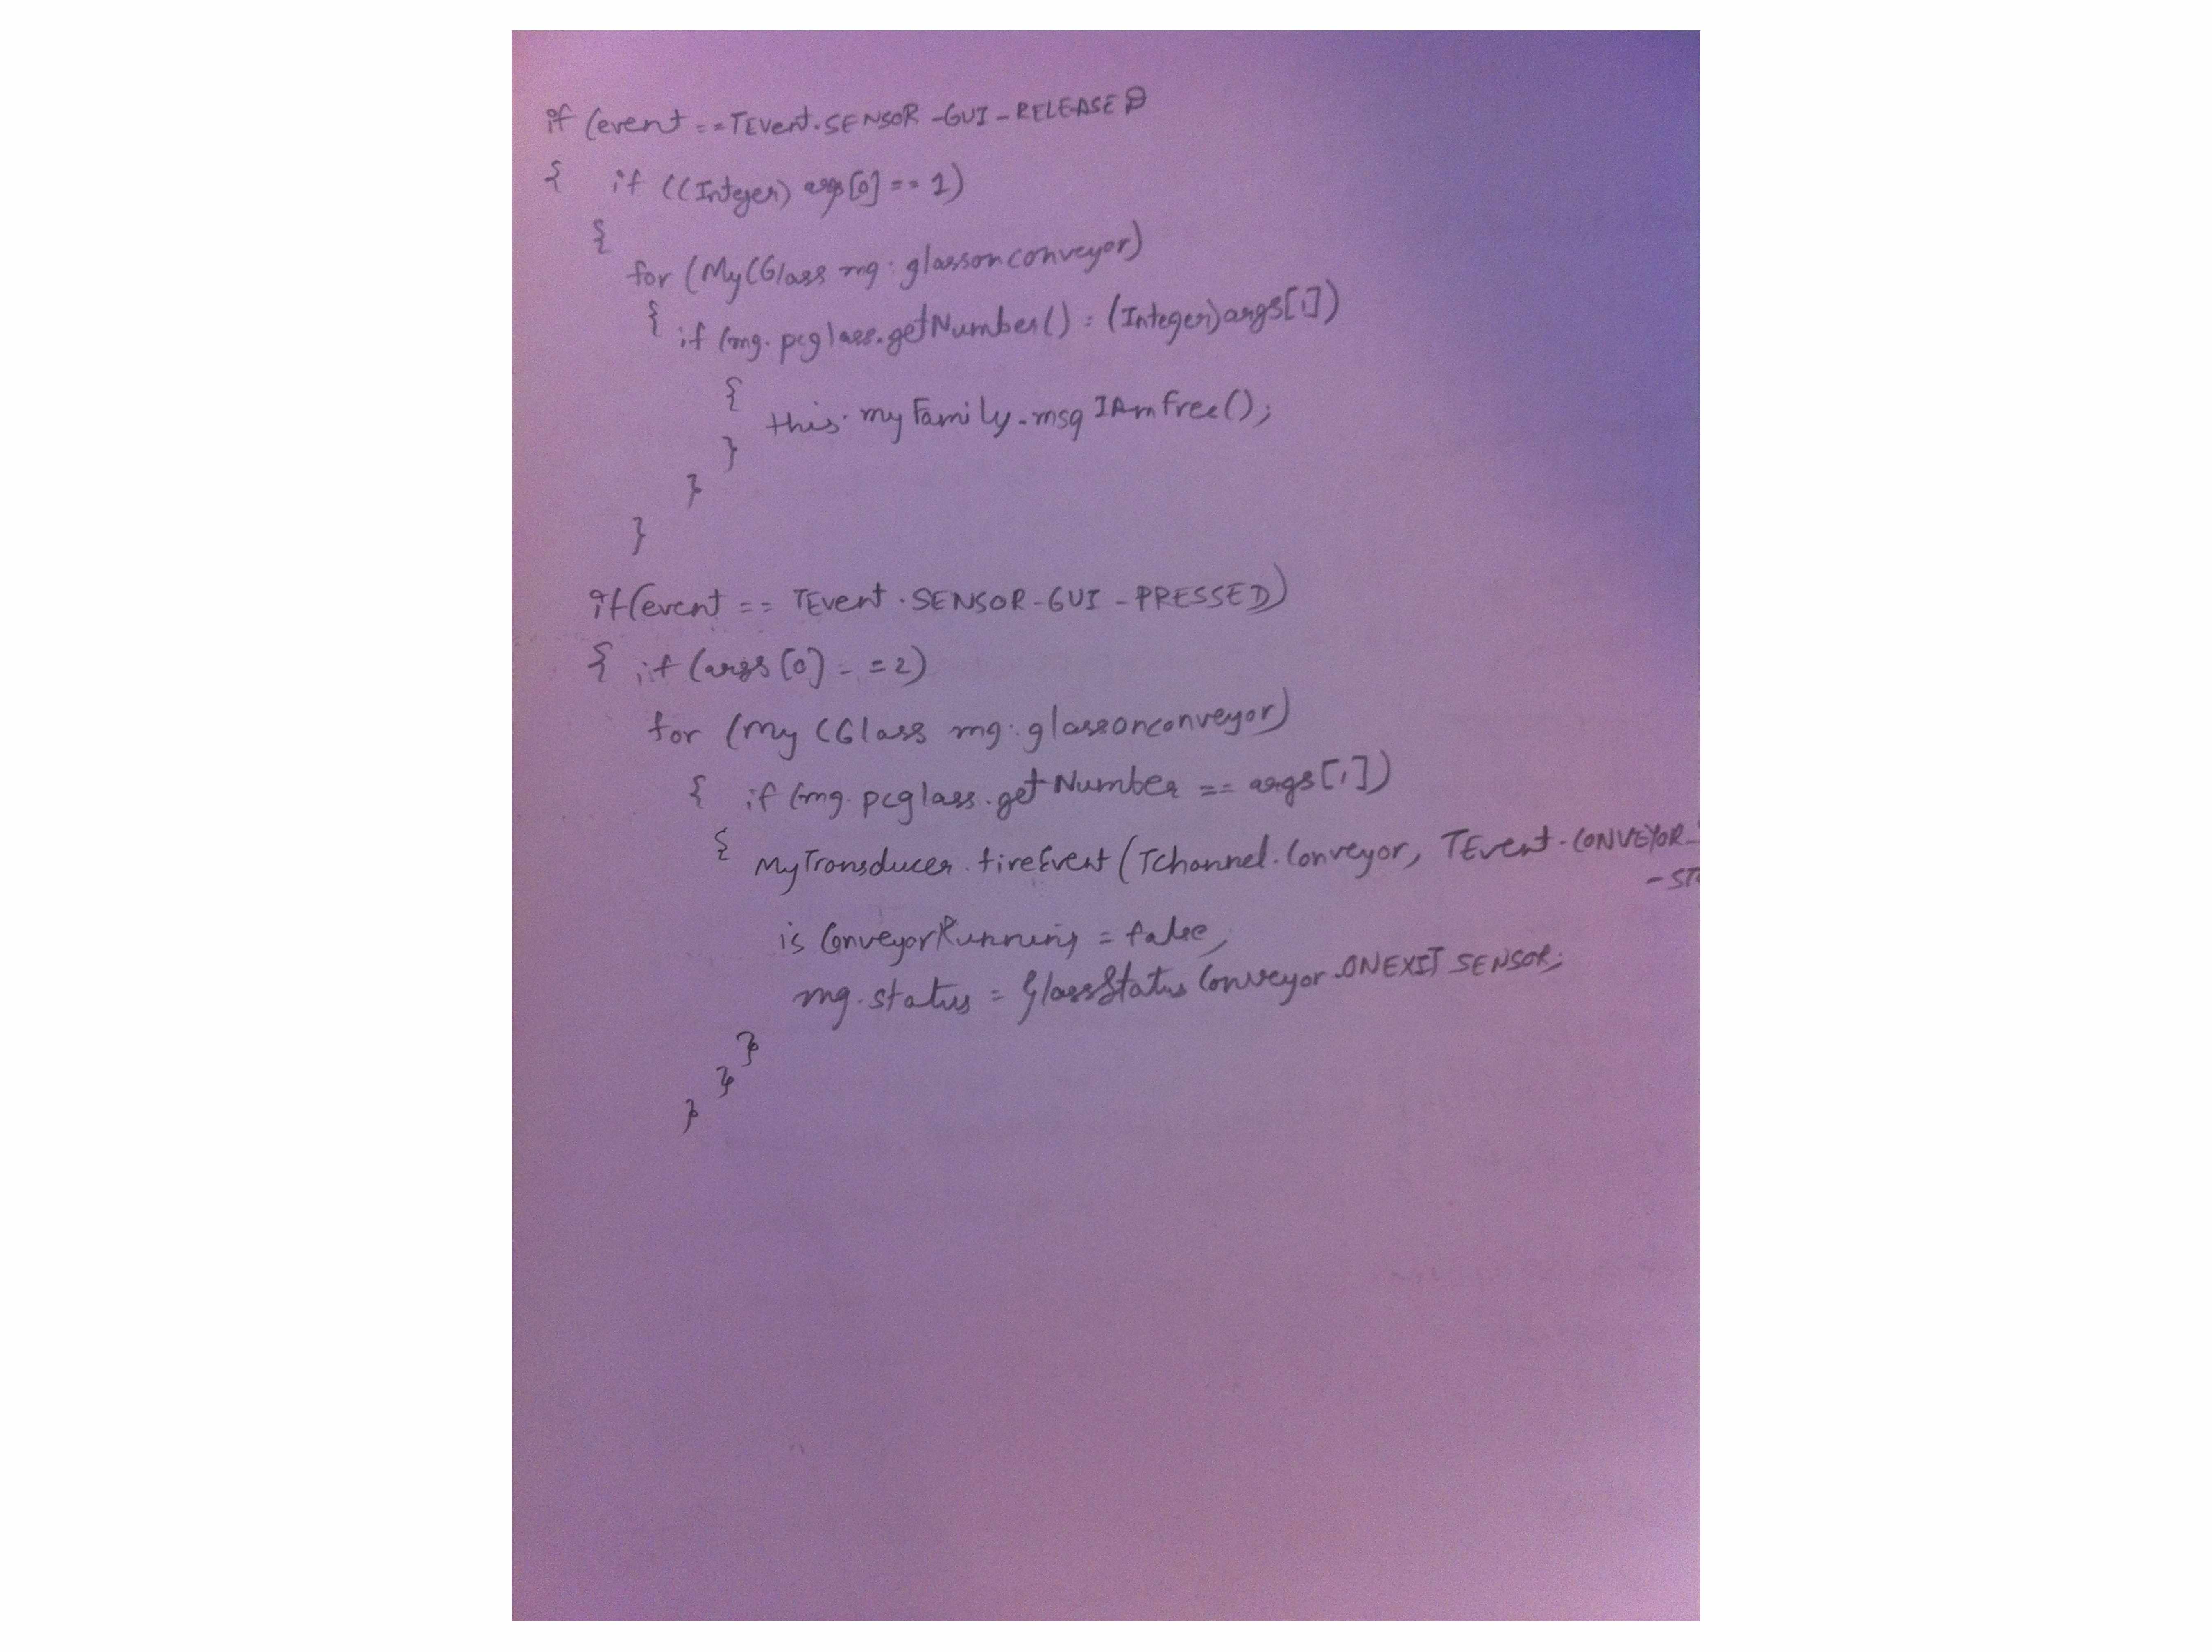 if (event == TEvent.SENSOR-GUI-RELEASED
{ if ((Integer) args[0] == 1)
{
for (MyCGlass mg : glassonconveyor)
{ if (mg.pcglass.getNumber() = (Integer)args[1])
{
this.myFamily.msgIAmFree();
}
}
}
if(event == TEvent.SENSOR-GUI-PRESSED)
{ if (args[0] == 2)
for (My CGlass mg : glassonconveyor)
{ if (mg.pcglass.getNumber == args[1])
{ MyTransducer.fireEvent(TChannel.Conveyor, TEvent.CONVEYOR-
-ST
isConveyorRunning = false;
mg.status = GlassStatusConveyor.ONEXITSENSOR;
}
}
}